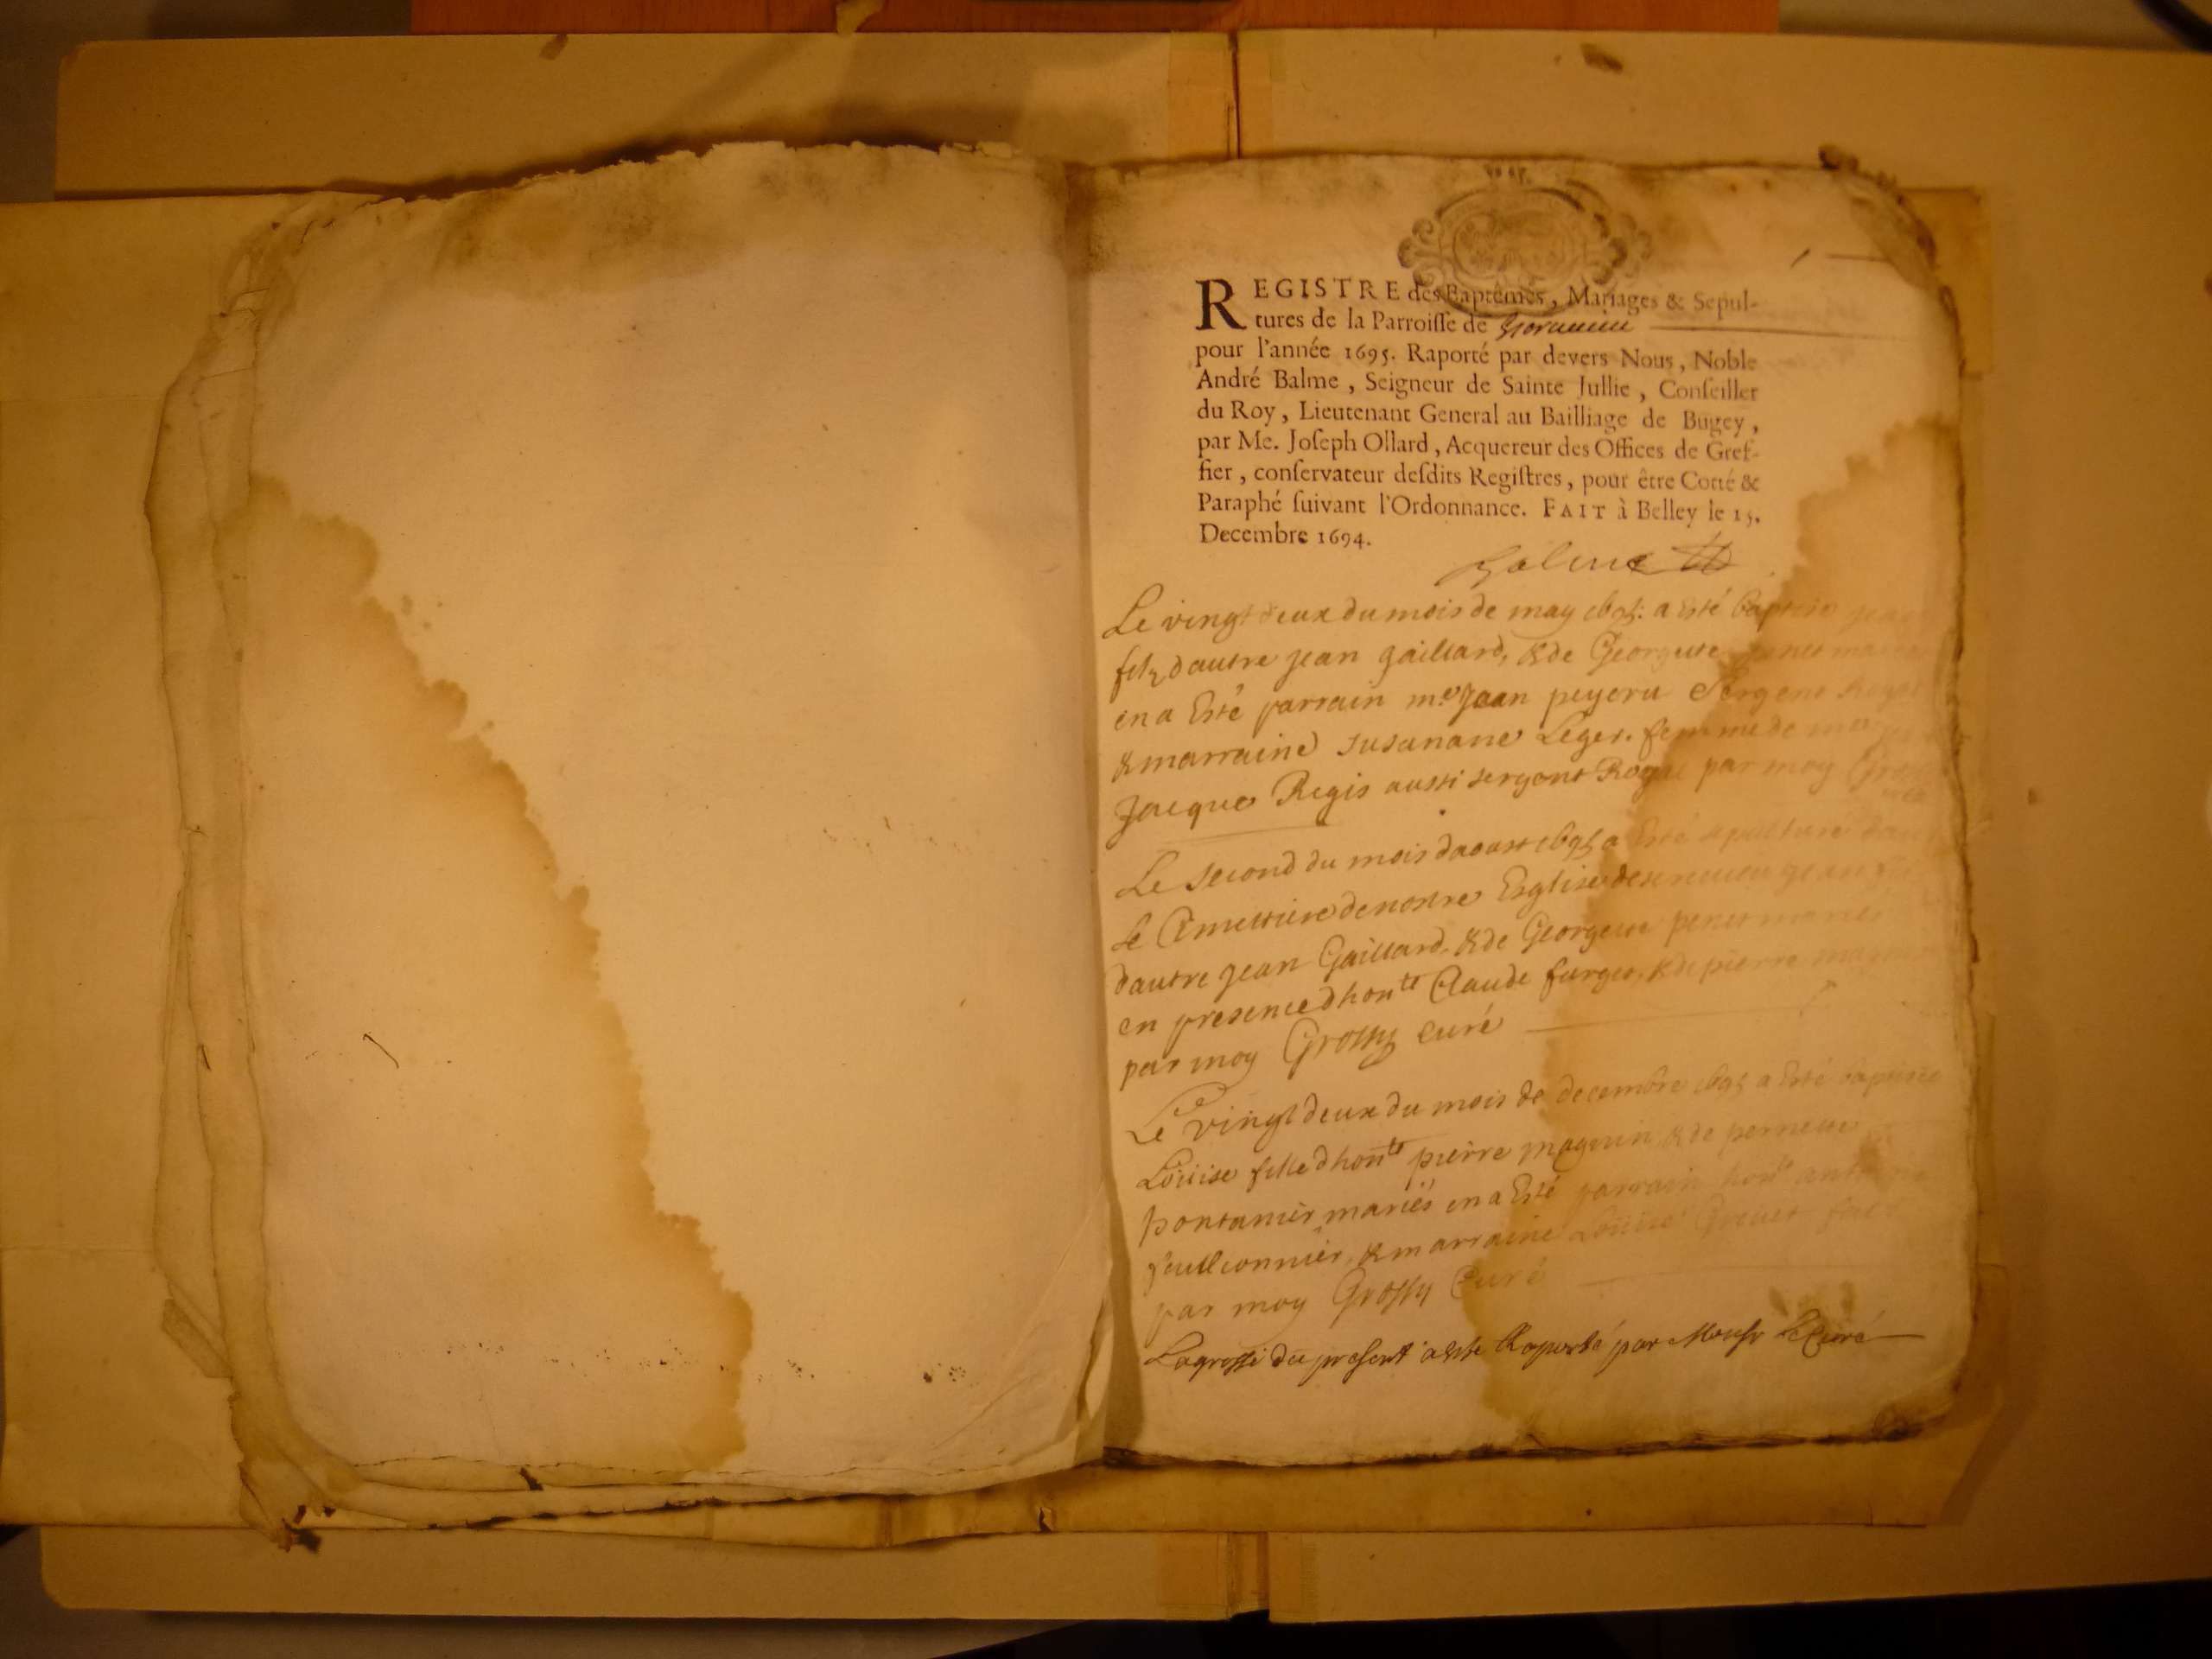 REGISTRE des Baptêmes, Mariages & Sepul-
tures de la Parroiſſe de
pour l'année 1695. Raporté par devers Nous, Noble
André Balme, Seigneur de Sainte Jullie, Conſeiller
du Roy, Lieutenant General au Bailliage de Bugey,
par Me. Joſeph Ollard, Acquereur des Offices de Gref-
fier, conſervateur deſdits Regiſtres, pour être Cotté &
Paraphé ſuivant l'Ordonnance. FAIT à Belley le 15.
Decembre 1694.
Balme
Le vingt deux du mois de may 1695: a Esté baptisé jean
filz dautre jean gaillard, & de Georgette penet mariés
en a Esté parrain me Jean peyeru Sergent Royal
& marraine susanane Leger. femme de me
Jacque Regis aussi sergent Royal par moy Grossy
Le second du mois daoust 1695 a Esté sepulturé dans
le Cimettiere de nostre Esglise
dautre jean Gaillard, & de Georgette penet mariés
en presence dhonte Claude furger, & de pierre magnin
par moy Grossy curé
Le vingt deux du mois de decembre 1695 a Esté baptisée
Loüise fille dhonte pierre magnin & de pernette
pontanier mariés en a Esté parrain honte
feullionnier, & marraine Loüise
par moy Grossy Curé
La grosse du present a esté Raporté par Monsr Le Curé